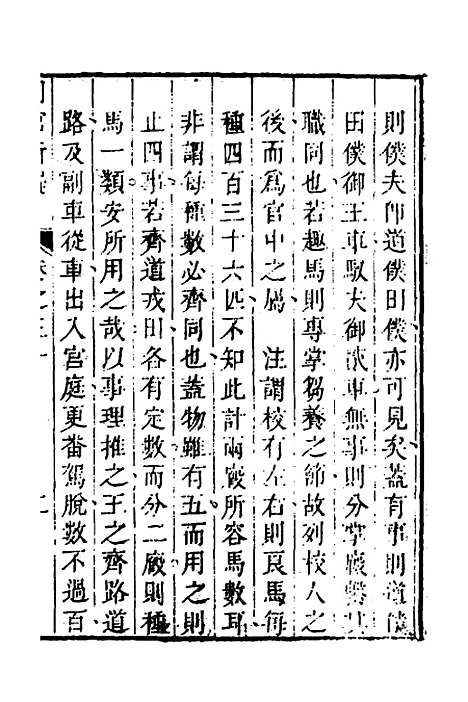 則僕夫即道僕田僕亦可見矣蓋有事則道僕
田僕御王車馭夫御從車無事則分掌廄繫其
職同也若趣馬則專掌芻養之節故列校人之
後而爲官中之屬　注謂校有左右則良馬每
種四百三十六匹不知此計兩廄所容馬數耳
非謂每種數必齊同也蓋物雖有五而用之則
止四事若齊道戎田各有定數而分二廄則種
馬一類安所用之哉以事理推之王之齊路道
路及副車從車出入宮庭更畨駕脫數不過百
卷之三十